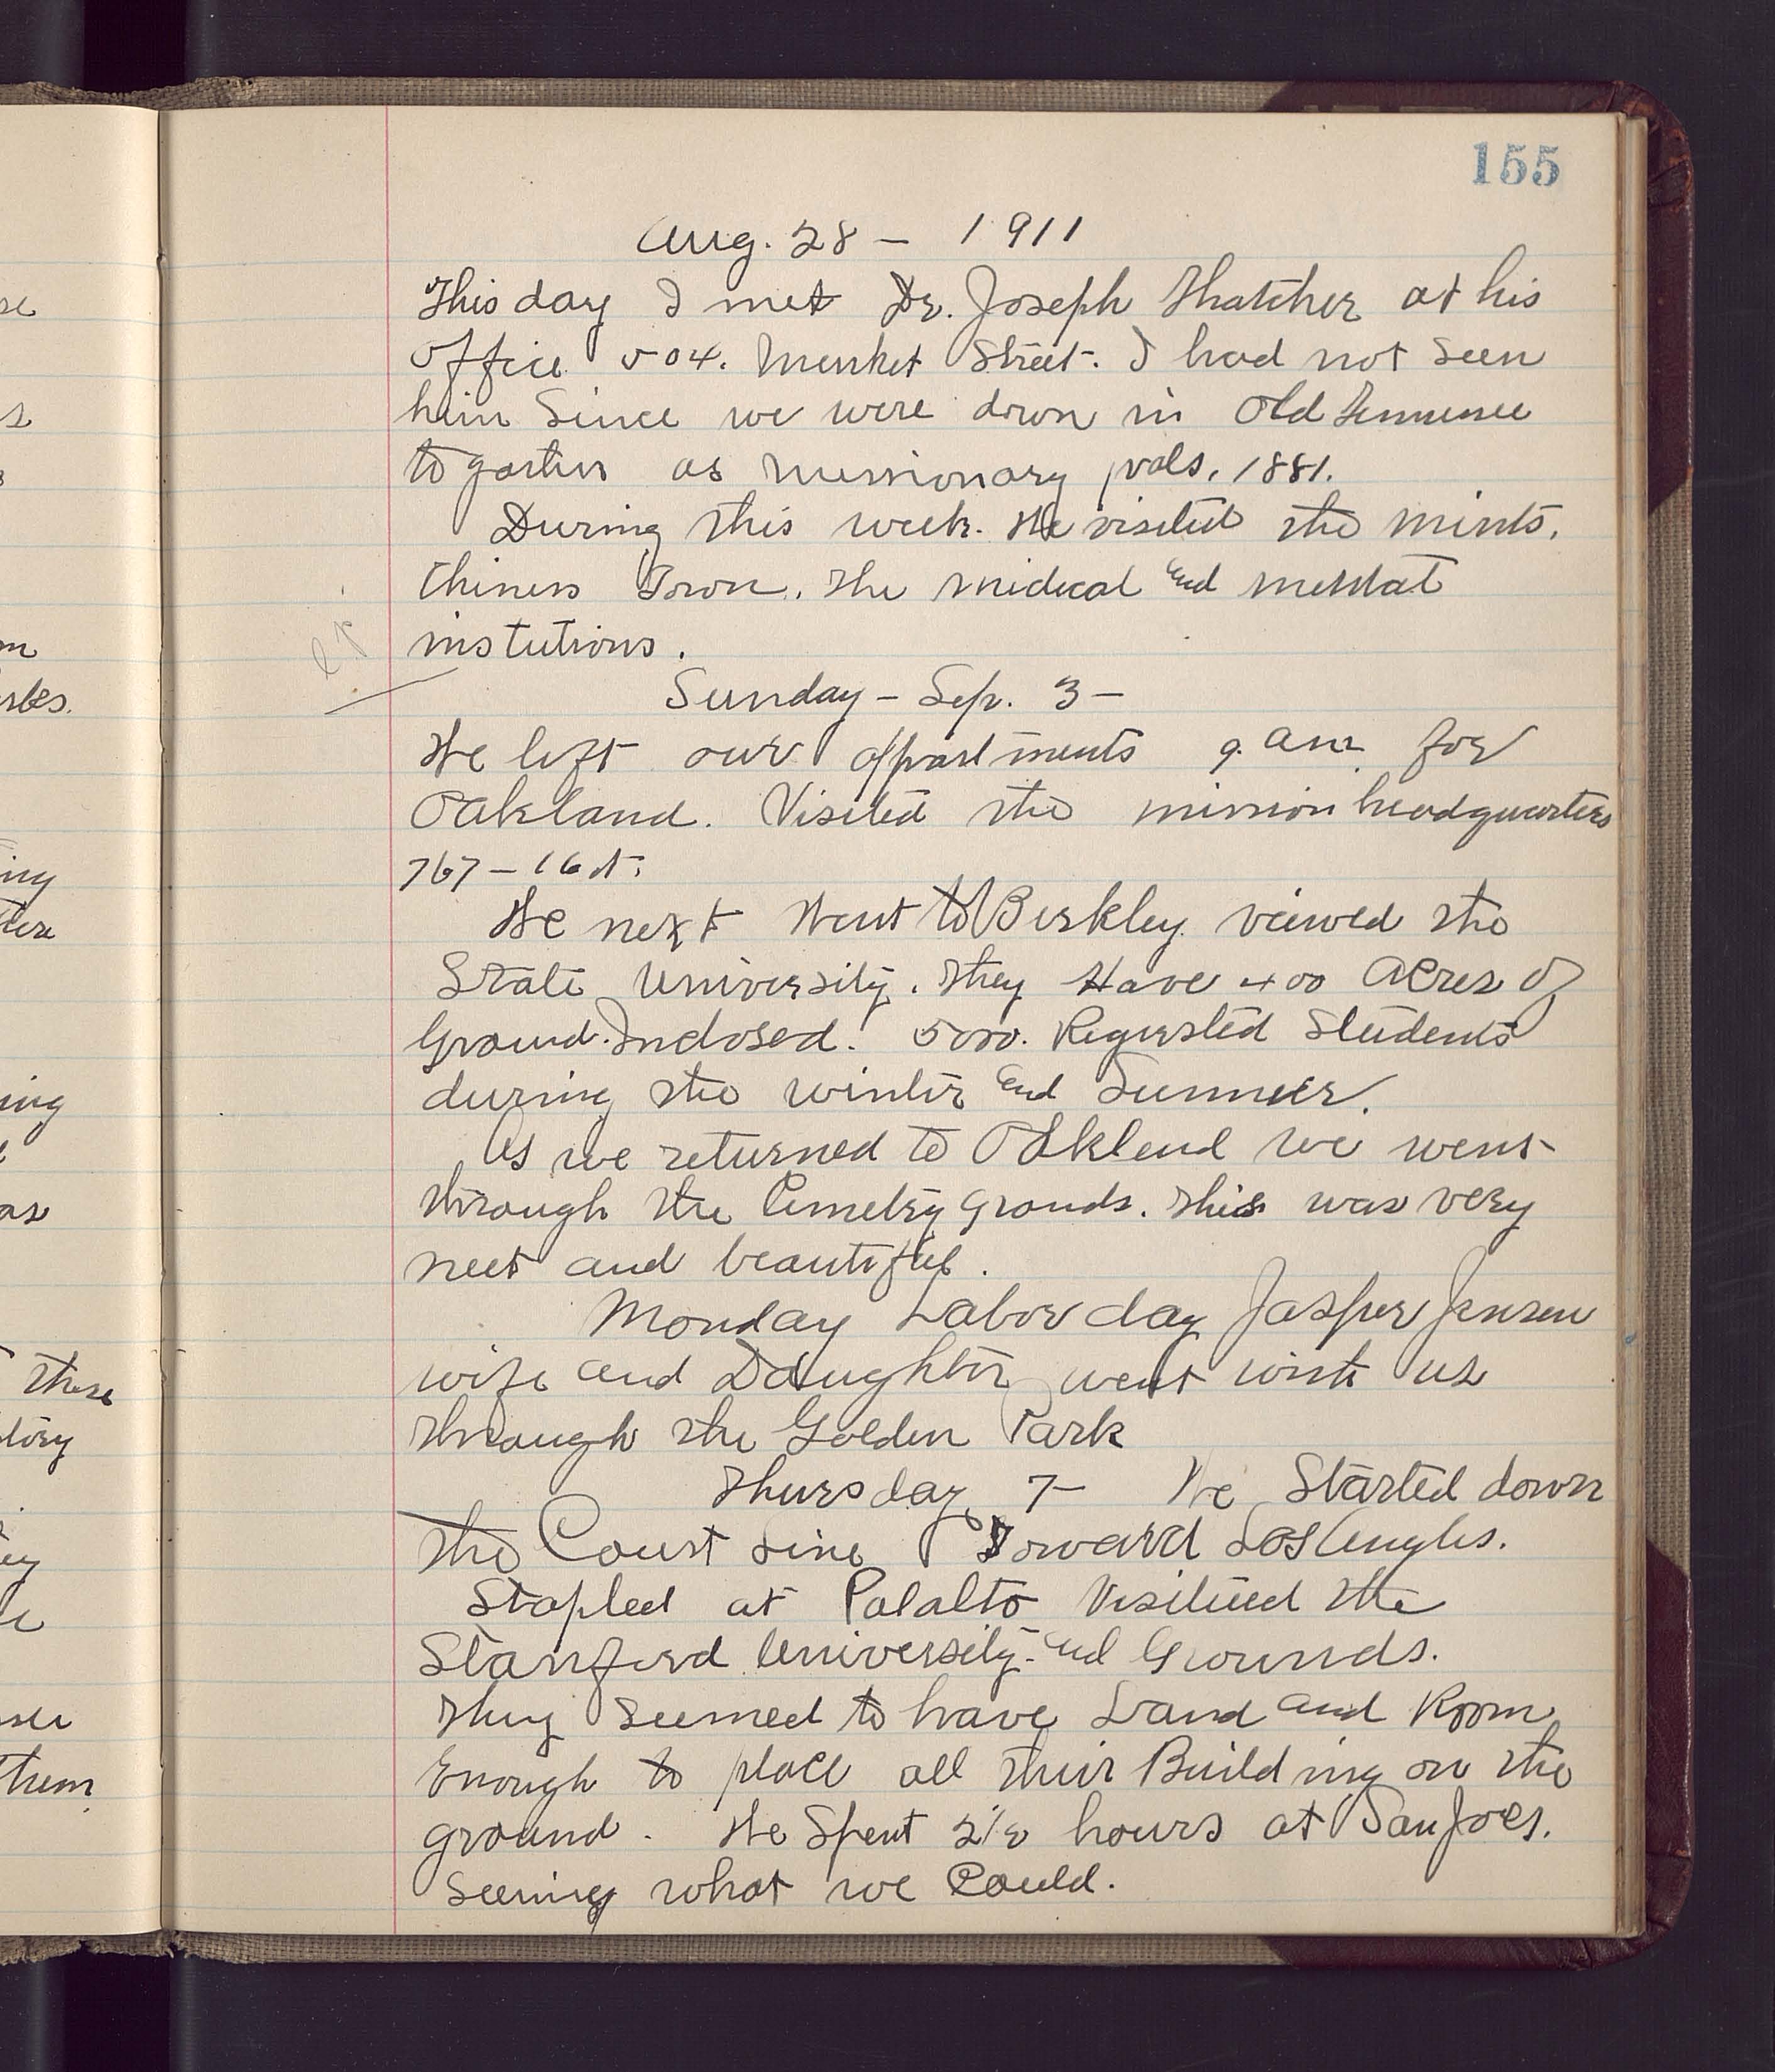 155
Aug. 28 - 1911
This day I met Dr. Joseph Thatcher at his
office 504. Market Street. I had not seen
him Since we were down in Old Tennessee
to gather as missionary pals, 1881.
During this week. We visited the mints.
Chiness Town. The medical and mental
instutions.
Sunday - Sep. 3 -
We left our appartments 9. am. for
Oakland. Visited the mission headquarters
767 - 16 st.
We next Went to Berkley viewed the
State University. They Have 400 Acres of
Ground. Inclosed. 5000. Regersted Students
during the winter and Summer.
As we returned to Oakland we went
through the Cemetry grounds. This was very
neet and beautiful.
Monday Labor day Jasper Jensen
wife and Daughter went with us
through the Golden Park
Thursday 7 - We Started down
the Coust Line Toward Los Angles.
Stopled at Palalto Visitued the
Stanford University. and Grounds.
They seemed to have Land and Room
Enough to place all their Building on the
ground. We Spent 2 1/2 hours at San Joes.
seeing what we Could.
these
them